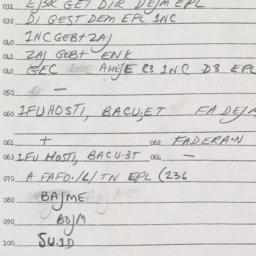 031 E/3R GET D/R DEJM EPL
032 D) GEST DEM EPL 1NC
040 1NCGEBT ZAJ
041 ZAJ GEBT ENK
042 GEC AHE/E C3 1NC D3 EPL
050 —
060 1FUHOSTI, BACU,ET FADEJM
061 + 062 FADERAN
063 1FU HOSTI, BACU.3T 064 —
070 A FAFO./L/TN EPL (236
080 BAJME
090 BOJM
100 5U.1D